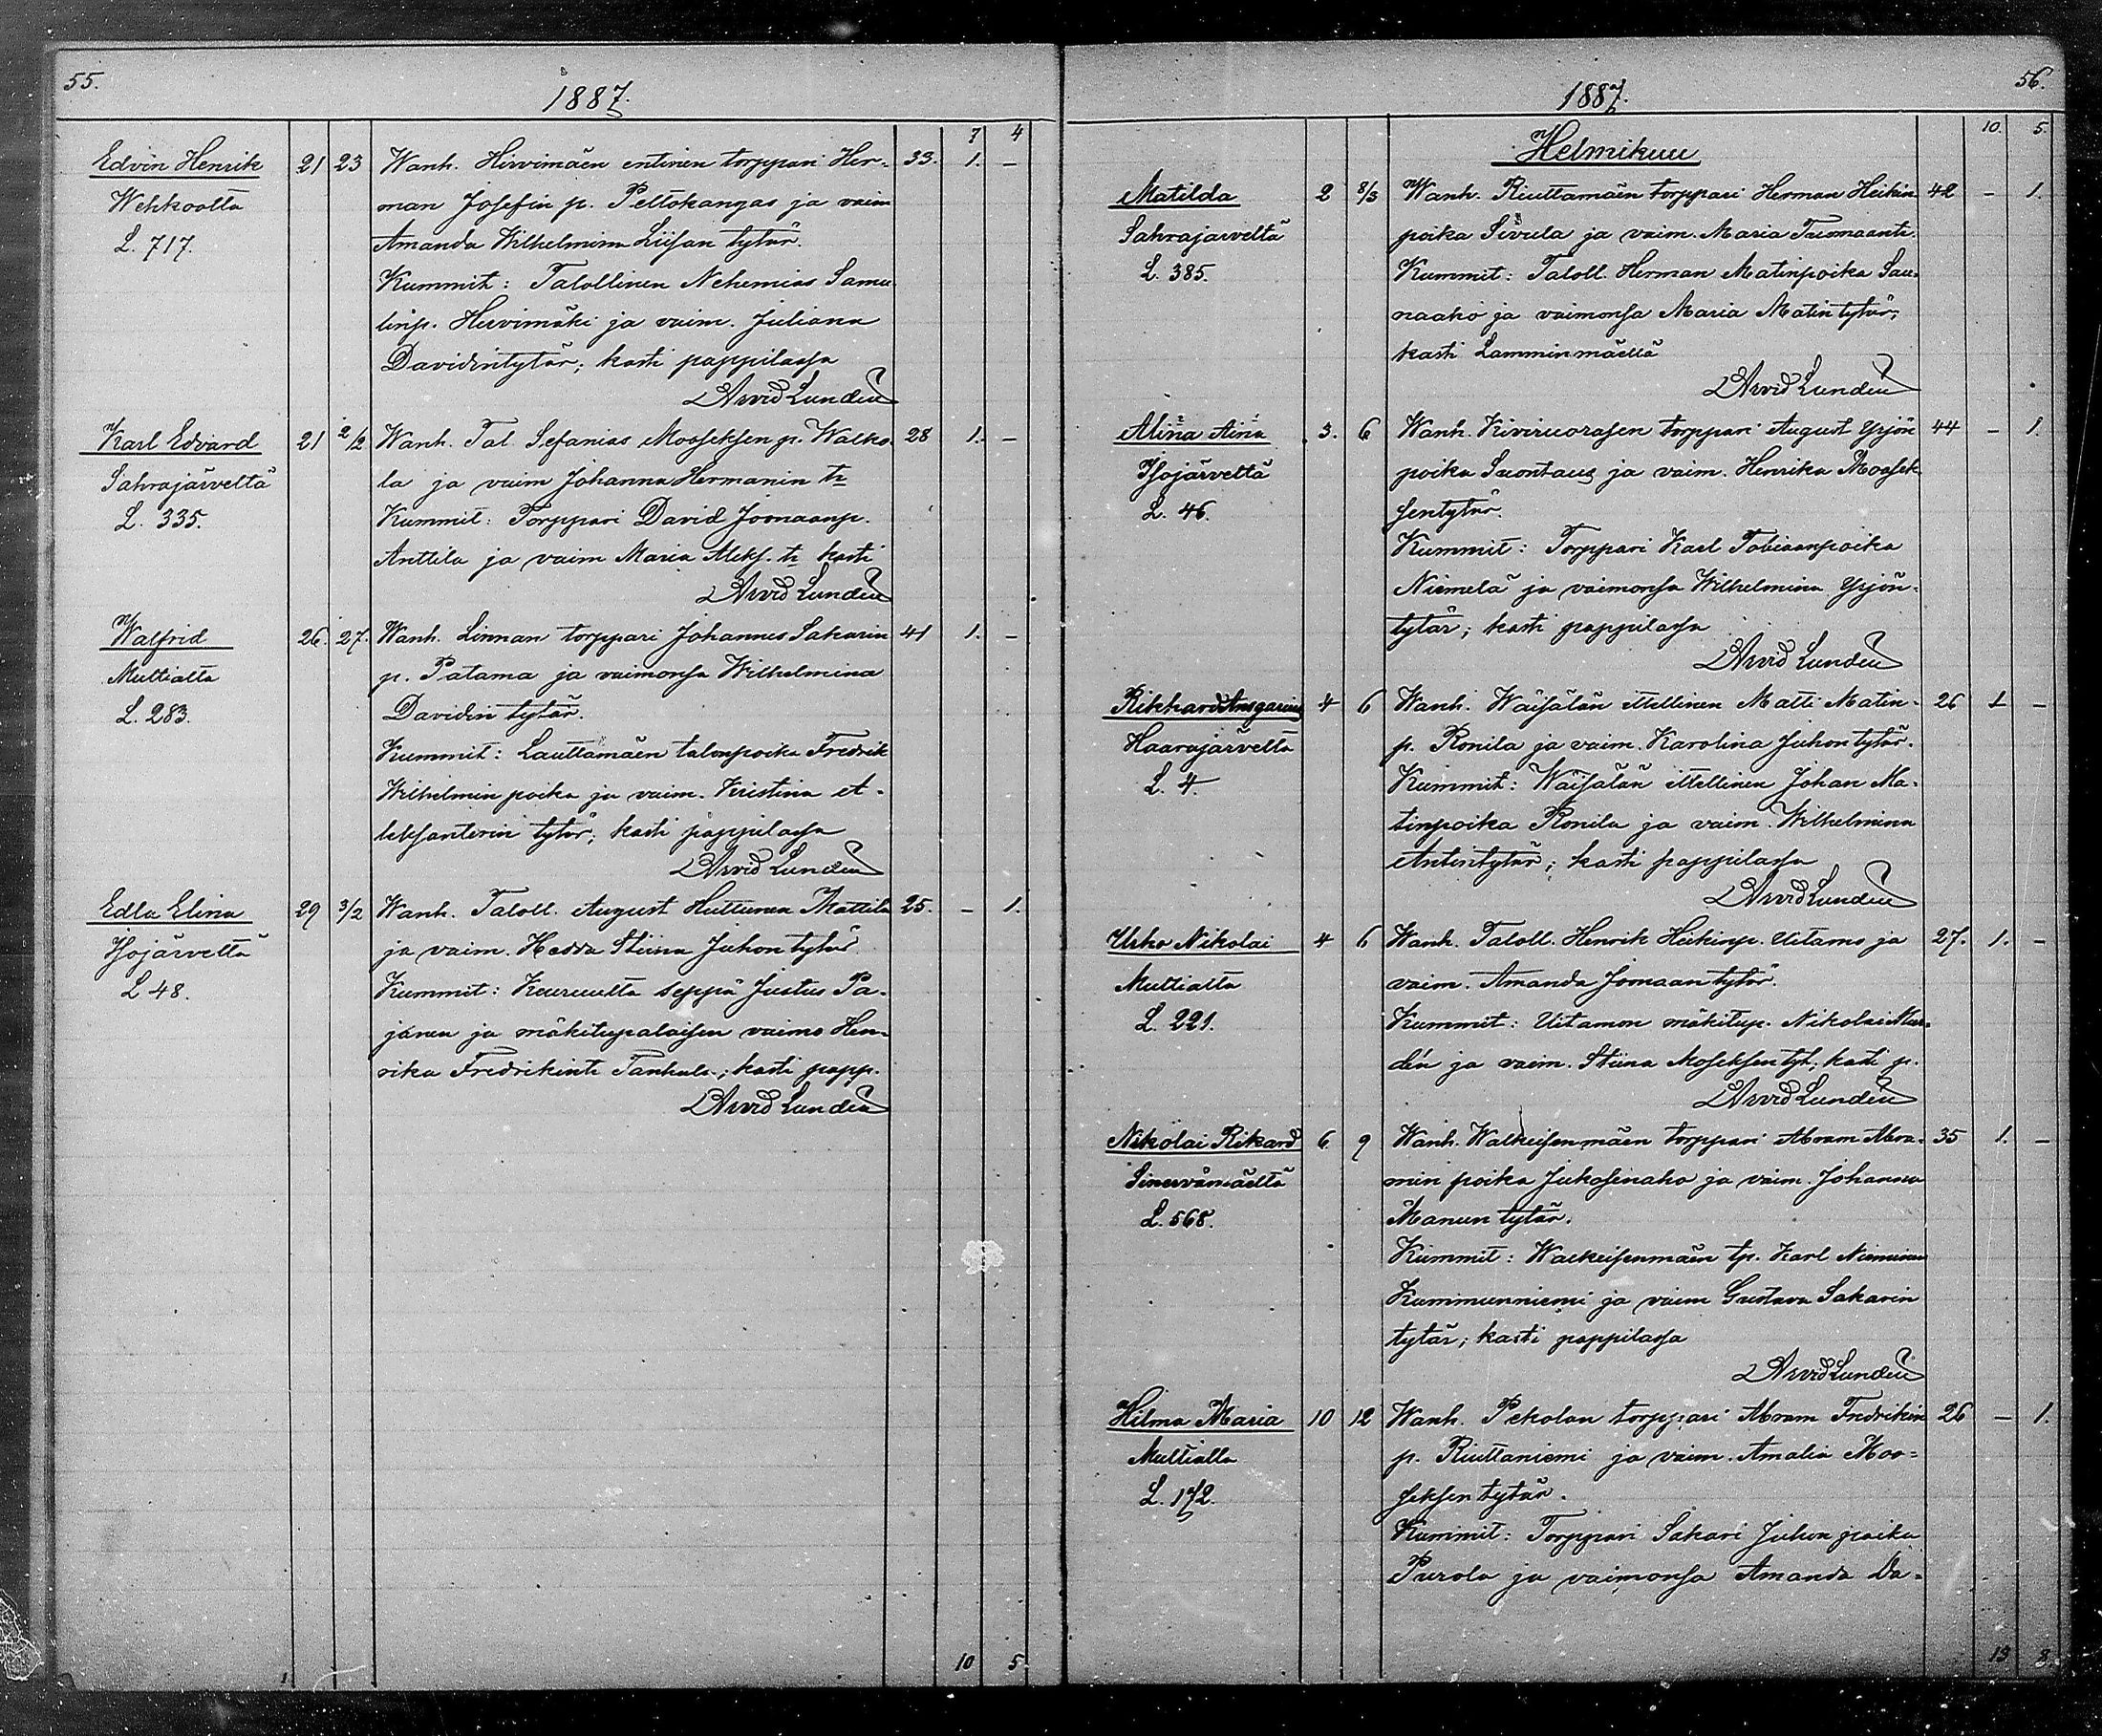 55.
1887.
7 4
Edvin Henrik 21 23 Wanh. Hirvimäen entinen torppari Her- 33. 1. —
Wehkoolta man Josefin p. Peltokangas ja vaim
L. 717. Amanda Wilhelmina Liisan tytär.
Kummit: Talollinen Nehemias Samu
linp. Hirvimäki ja vaim. Juliana
Davidintytär; kasti pappilassa
Arvid Lundén
Karl Edvard 21 2/2 Wanh. Tal. Sefanias Mooseksen p. Walko 28 1. —
Sahrajärveltä la ja vaim Johanna Hermanin tr
L. 335. Kummit: Torppari David Joonaanp.
Anttila ja vaim Maria Aleks. tr kasti
Arvid Lundén
Walfrid 26. 27. Wanh. Linnan torppari Johannes Sakarin 41 1. —
Multialta p. Patama ja vaimonsa Wilhelmina
L. 283. Davidin tytär.
Kummit: Lauttamäen talonpoika Fredrik
Wilhelmin poika ja vaim. Kristina A-
leksanterin tytär; kasti pappilassa
Arvid Lundén
Edla Elina 29 3/2 Wanh. Taloll. August Huttunen Mattila 25. — 1.
Isojärveltä ja vaim. Hedda Stiina Juhon tytär
L 48. Kummit: Keuruulta seppä Justus Pa-
janen ja mäkitupalaisen vaimo Hen-
rika Fredrikintr Tanhula.; kasti papp.
Arvid Lundén
10 5.
56.
1887.
10. 5.
Helmikuu
Matilda 2 8/3 Wanh. Riuttamäen torppari Herman Heikin 42 — 1.
Sahrajarveltä poika Sivula ja vaim. Maria Tuomaantr.
L. 385. Kummit: Taloll. Herman Matinpoika Sau-
naaho ja vaimonsa Maria Matin tytär;
kasti Lamminmäellä
Arvid Lundén
Alina Aina 3. 6 Wanh. Kiviruorasen torppari August Yrjön 44 — 1.
Isojärveltä poika Suontaus ja vaim. Henrika Moosek
L. 46. sentytär.
Kummit: Torppari Karl Tobiaanpoika
Niemelä ja vaimonsa Wilhelmina Yrjön-
tytär; kasti pappilassa
Arvid Lundén
Rikhard Ansgarius 4 6 Wanh. Wäisälän itellinen Matti Matin- 26 1 —
Haarajärveltä p. Ronila ja vaim. Karolina Juhon tytär.
L. 4. Kummit: Wäisälän itellinen Johan Ma-
tinpoika Ronila ja vaim. Wilhelmina
Antintytär; kasti pappilassa
Arvid Lundén
Urho Nikolai 4 6 Wanh. Taloll. Henrik Heikinp. Uitamo ja 27. 1. —
Multialta vaim. Amanda Joonaan tytär.
L. 221. Kummit: Uitamon mäkitup. Nikolai
dén ja vaim. Stiina Moseksen tyt; kasti p.
Arvid Lundén
Nikolai Rikard 6 9 Wanh. Walkeisenmäen torppari Abram Abra- 35 1. —
Sinervämäeltä min poika Jukosenaho ja vaim. Johanna
L. 568. Manun tytär.
Kummit: Walkeisenmäen tp. Karl Nieminen
Kummunniemi ja vaim Gustava Sakarin
tytär; kasti pappilassa
Arvid Lundén
Hilma Maria 10 12 Wanh. Pekolan torppari Abram Fredrikin 26 — 1.
Multialta p. Riuttaniemi ja vaim. Amalia Moo-
L. 172. seksen tytär.
Kummit: Torppari Sakari Juhon poika
Purola ja vaimonsa Amanda Da-
13 8.